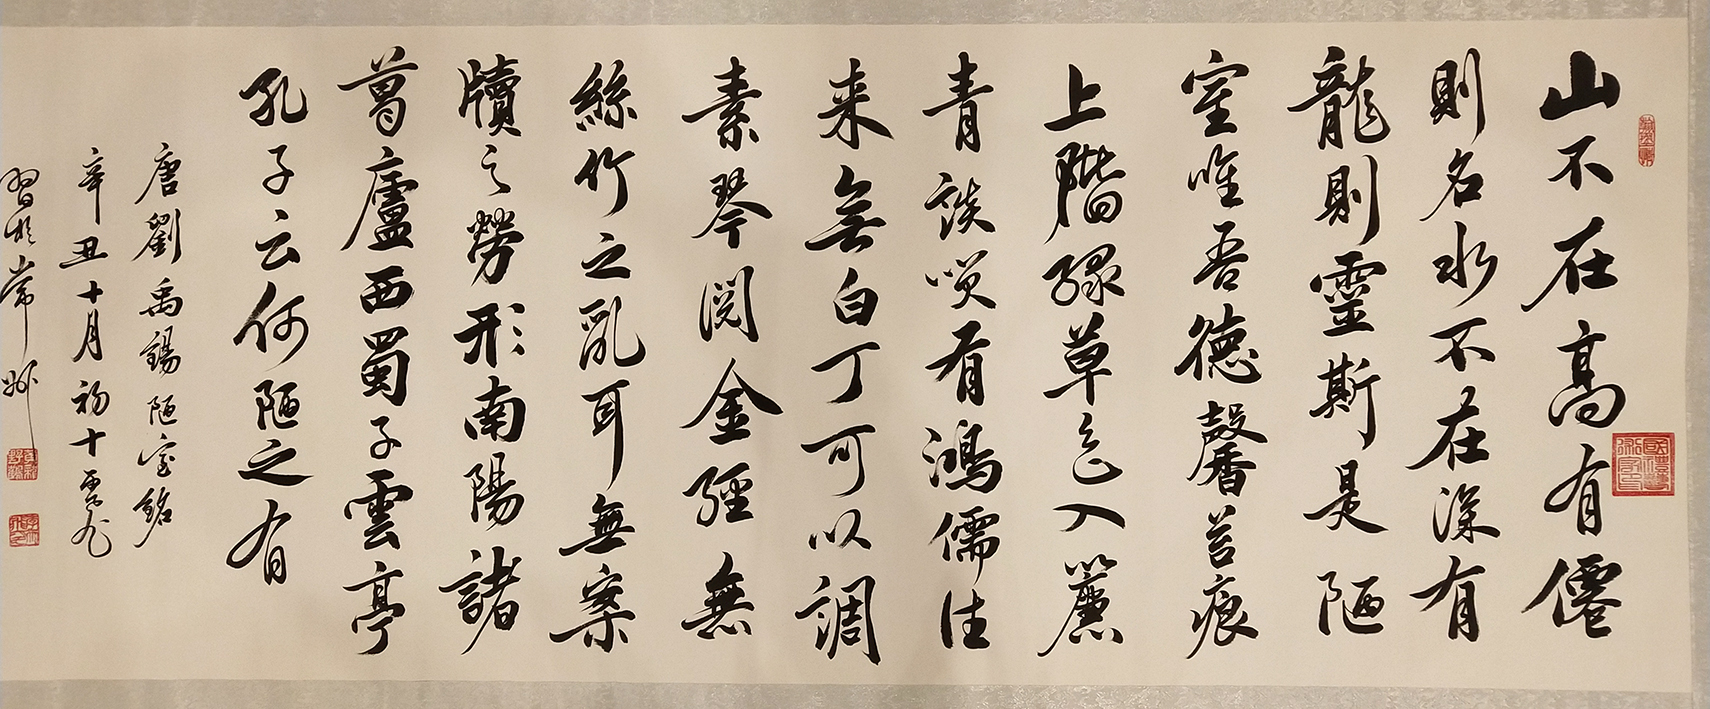 山不在高有僊
則名水不在深有
龍則靈斯是陋
室唯吾德馨苔痕
上階緑草色入簾
青談笑有鴻儒往
来無白丁可以調
素琴閲金經無
絲竹之亂耳無案
牘之勞形南陽諸
葛廬西蜀子雲亭
孔子云何陋之有
唐劉禹錫陋室銘
辛丑十月初十
習於常州